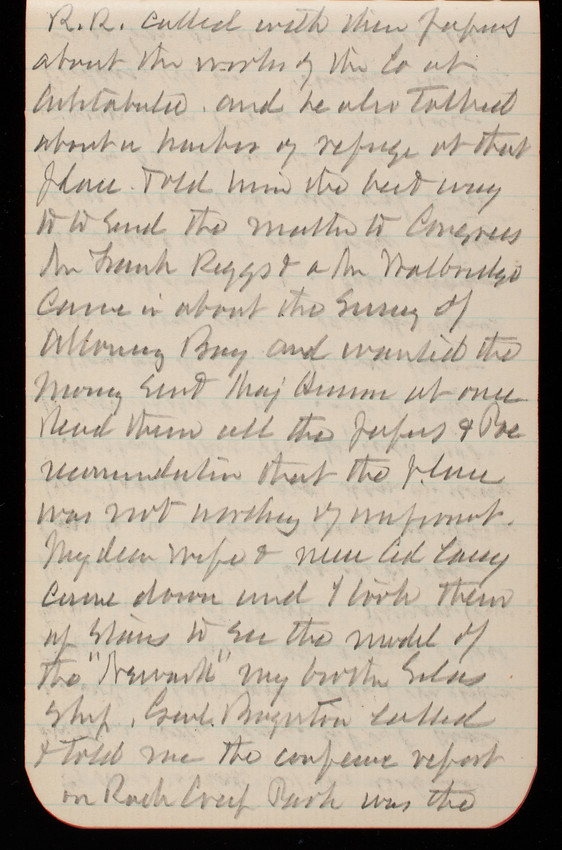 R.R. called with their papers
about the works of the Co at
Ashtabula. and he also talked
about a harbor of refuge at that
place. Told him the best way
to send the matter to Congress
Mr Frank Riggs & a Mr Walbridge
came in about the Survey of
Bay and wanted the
money sent Maj at once
Read them all the papers & Poe
recommendation that the place
was not worthy of improvmt.
My dear wife & niece
came down and I took them
up stairs to see the model of
the "Newark" my brother Silas
ship. Genl. Boynton called
& told me the conference report
on Rock Creek Park was the